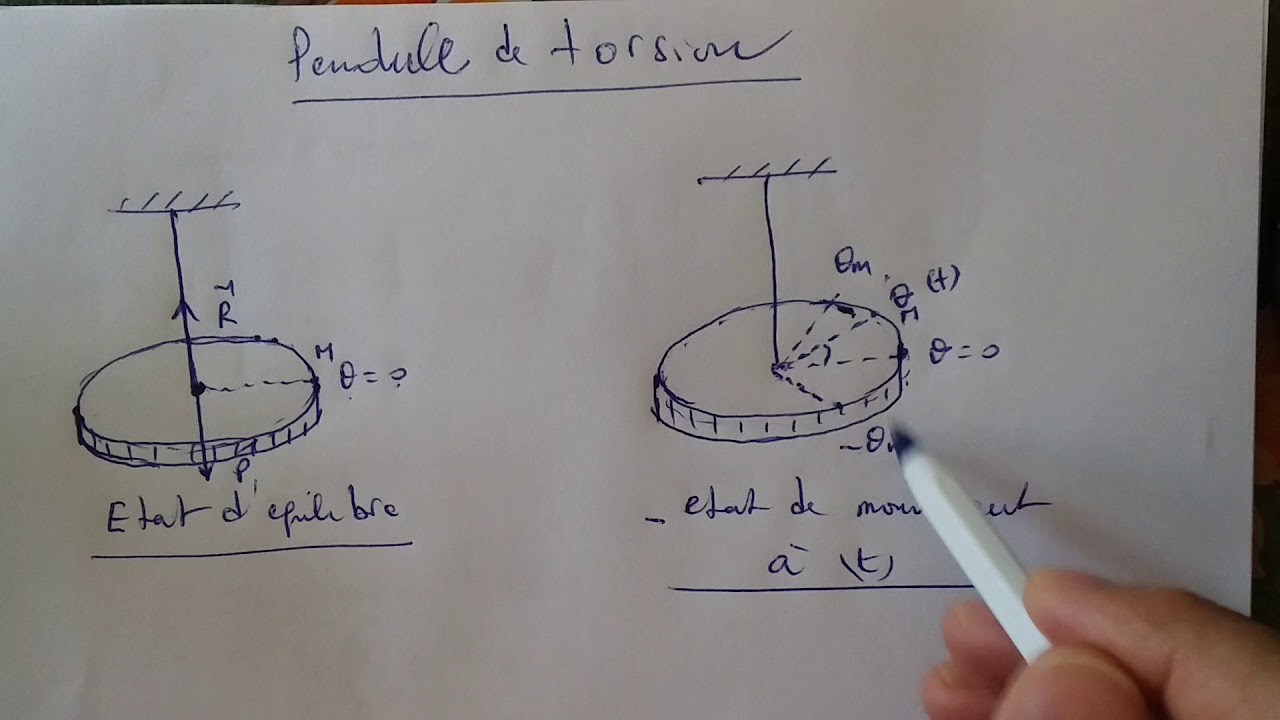 Pendule de torsion
R
M
θ = 0
P
Etat d'epilibre
θm
θ (t)
θ = 0
-θ
- etat de
à (t)